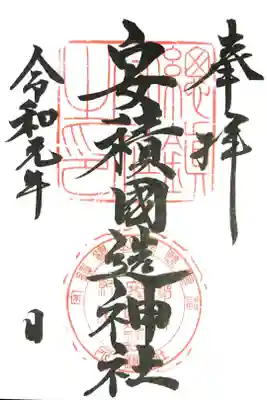 奉拝
安積國造神社
令和元年
日